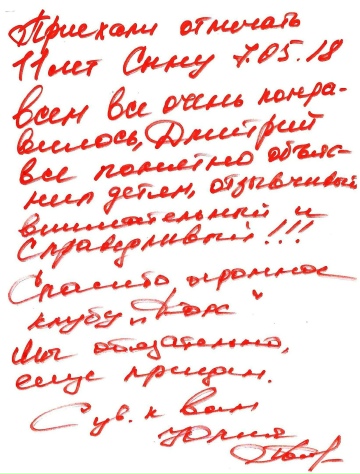 Приехали отмечать
11 лет Сыну 7.05.18
всем все очень понра-
вилось, Дмитрий
все понятно объяс-
нил детям, отзывчивый
внимательный и
справедливый!!!
Спасибо огромное
клубу
Мы обязательно,
еще придем.
С ув. к вам
Юлий